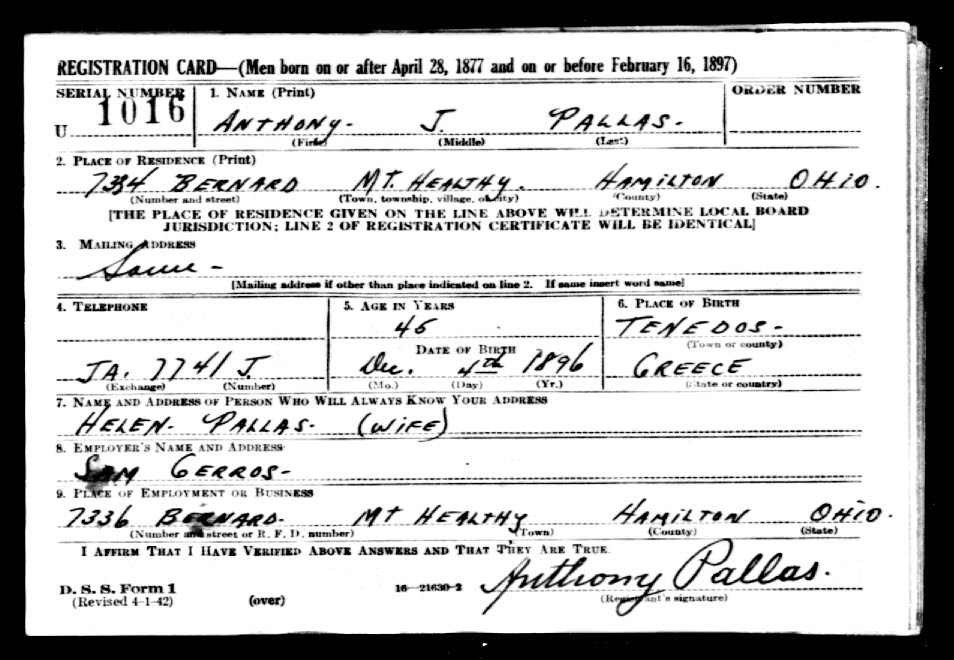 REGISTRATION CARD—(Men born on or after April 28, 1877 and on or before February 16, 1897)
SERIAL NUMBER 1. NAME (Print) ORDER NUMBER
U 1016 ANTHONY- J. PALLAS-
(First) (Middle) (Last)
2. PLACE OF RESIDENCE (Print)
7334 BERNARD MT. HEALTHY. HAMILTON OHIO.
(Number and street) (Town, township, village, or city) (County) (State)
[THE PLACE OF RESIDENCE GIVEN ON THE LINE ABOVE WILL DETERMINE LOCAL BOARD
JURISDICTION; LINE 2 OF REGISTRATION CERTIFICATE WILL BE IDENTICAL]
3. MAILING ADDRESS
Same -
[Mailing address if other than place indicated on line 2. If same insert word same]
4. TELEPHONE 5. AGE IN YEARS 6. PLACE OF BIRTH
45 TENEDOS-
DATE OF BIRTH (Town or county)
JA. 7741 J. Dec. 4th 1896 GREECE
(Exchange) (Number) (Mo.) (Day) (Yr.) (State or country)
7. NAME AND ADDRESS OF PERSON WHO WILL ALWAYS KNOW YOUR ADDRESS
HELEN- PALLAS- (WIFE)
8. EMPLOYER'S NAME AND ADDRESS
SAM GERROS-
9. PLACE OF EMPLOYMENT OR BUSINESS
7336 BERNARD- MT HEALTHY HAMILTON OHIO.
(Number and street or R. F. D. number) (Town) (County) (State)
I AFFIRM THAT I HAVE VERIFIED ABOVE ANSWERS AND THAT THEY ARE TRUE.
D. S. S. Form 1 16—21630-2 Anthony Pallas.
(Revised 4-1-42) (over) (Registrant's signature)